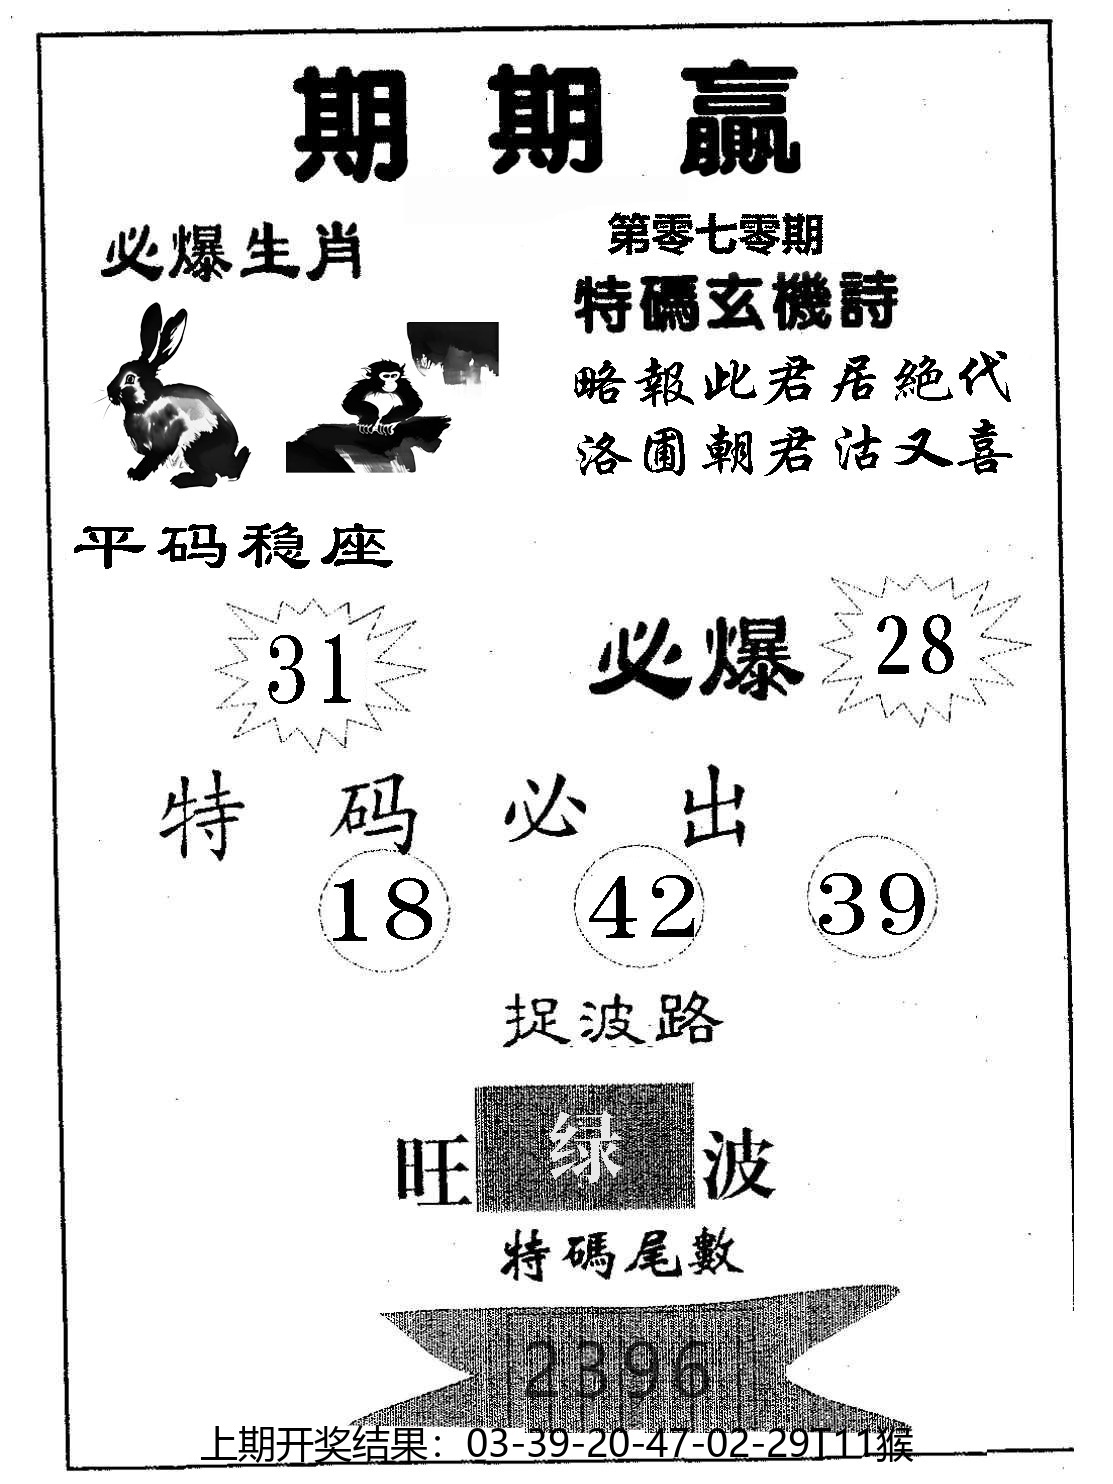 期期贏
必爆生肖
第零七零期
特碼玄機詩
略報此君居絕代
洛圃朝君沽又喜
平码稳座
31
必爆
28
特码必出
18 42 39
捉波路
旺绿波
特碼尾數
2396
上期开奖结果：03-39-20-47-02-29T11猴